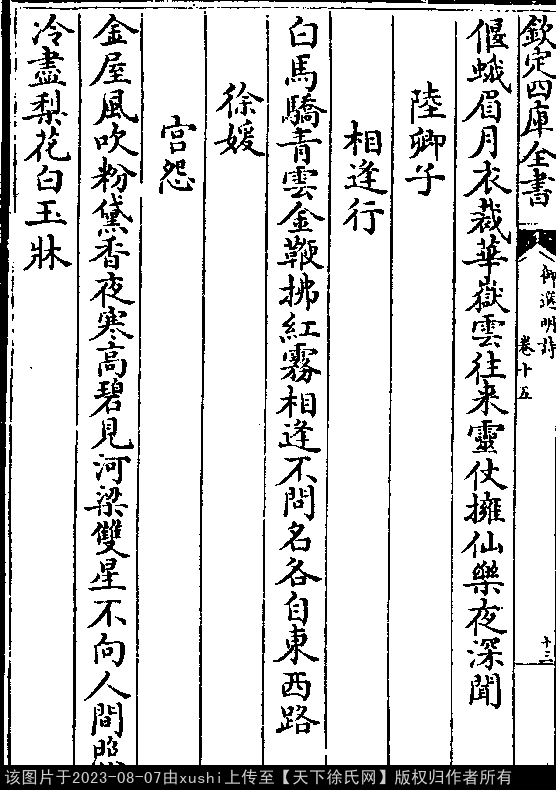 欽定四庫全書
御選明詩
卷十五
十三
偃蛾眉月衣裁華嶽雲往来靈仗擁仙樂夜深聞
陸卿子
相逢行
白馬驕青雲金鞭拂紅霧相逢不問名各自東西路
徐媛
宫怨
金屋風吹粉黛香夜寒高碧見河梁雙星不向人間照
冷盡梨花白玉牀
该图片于2023-08-07由xushi上传至【天下徐氏网】版权归作者所有